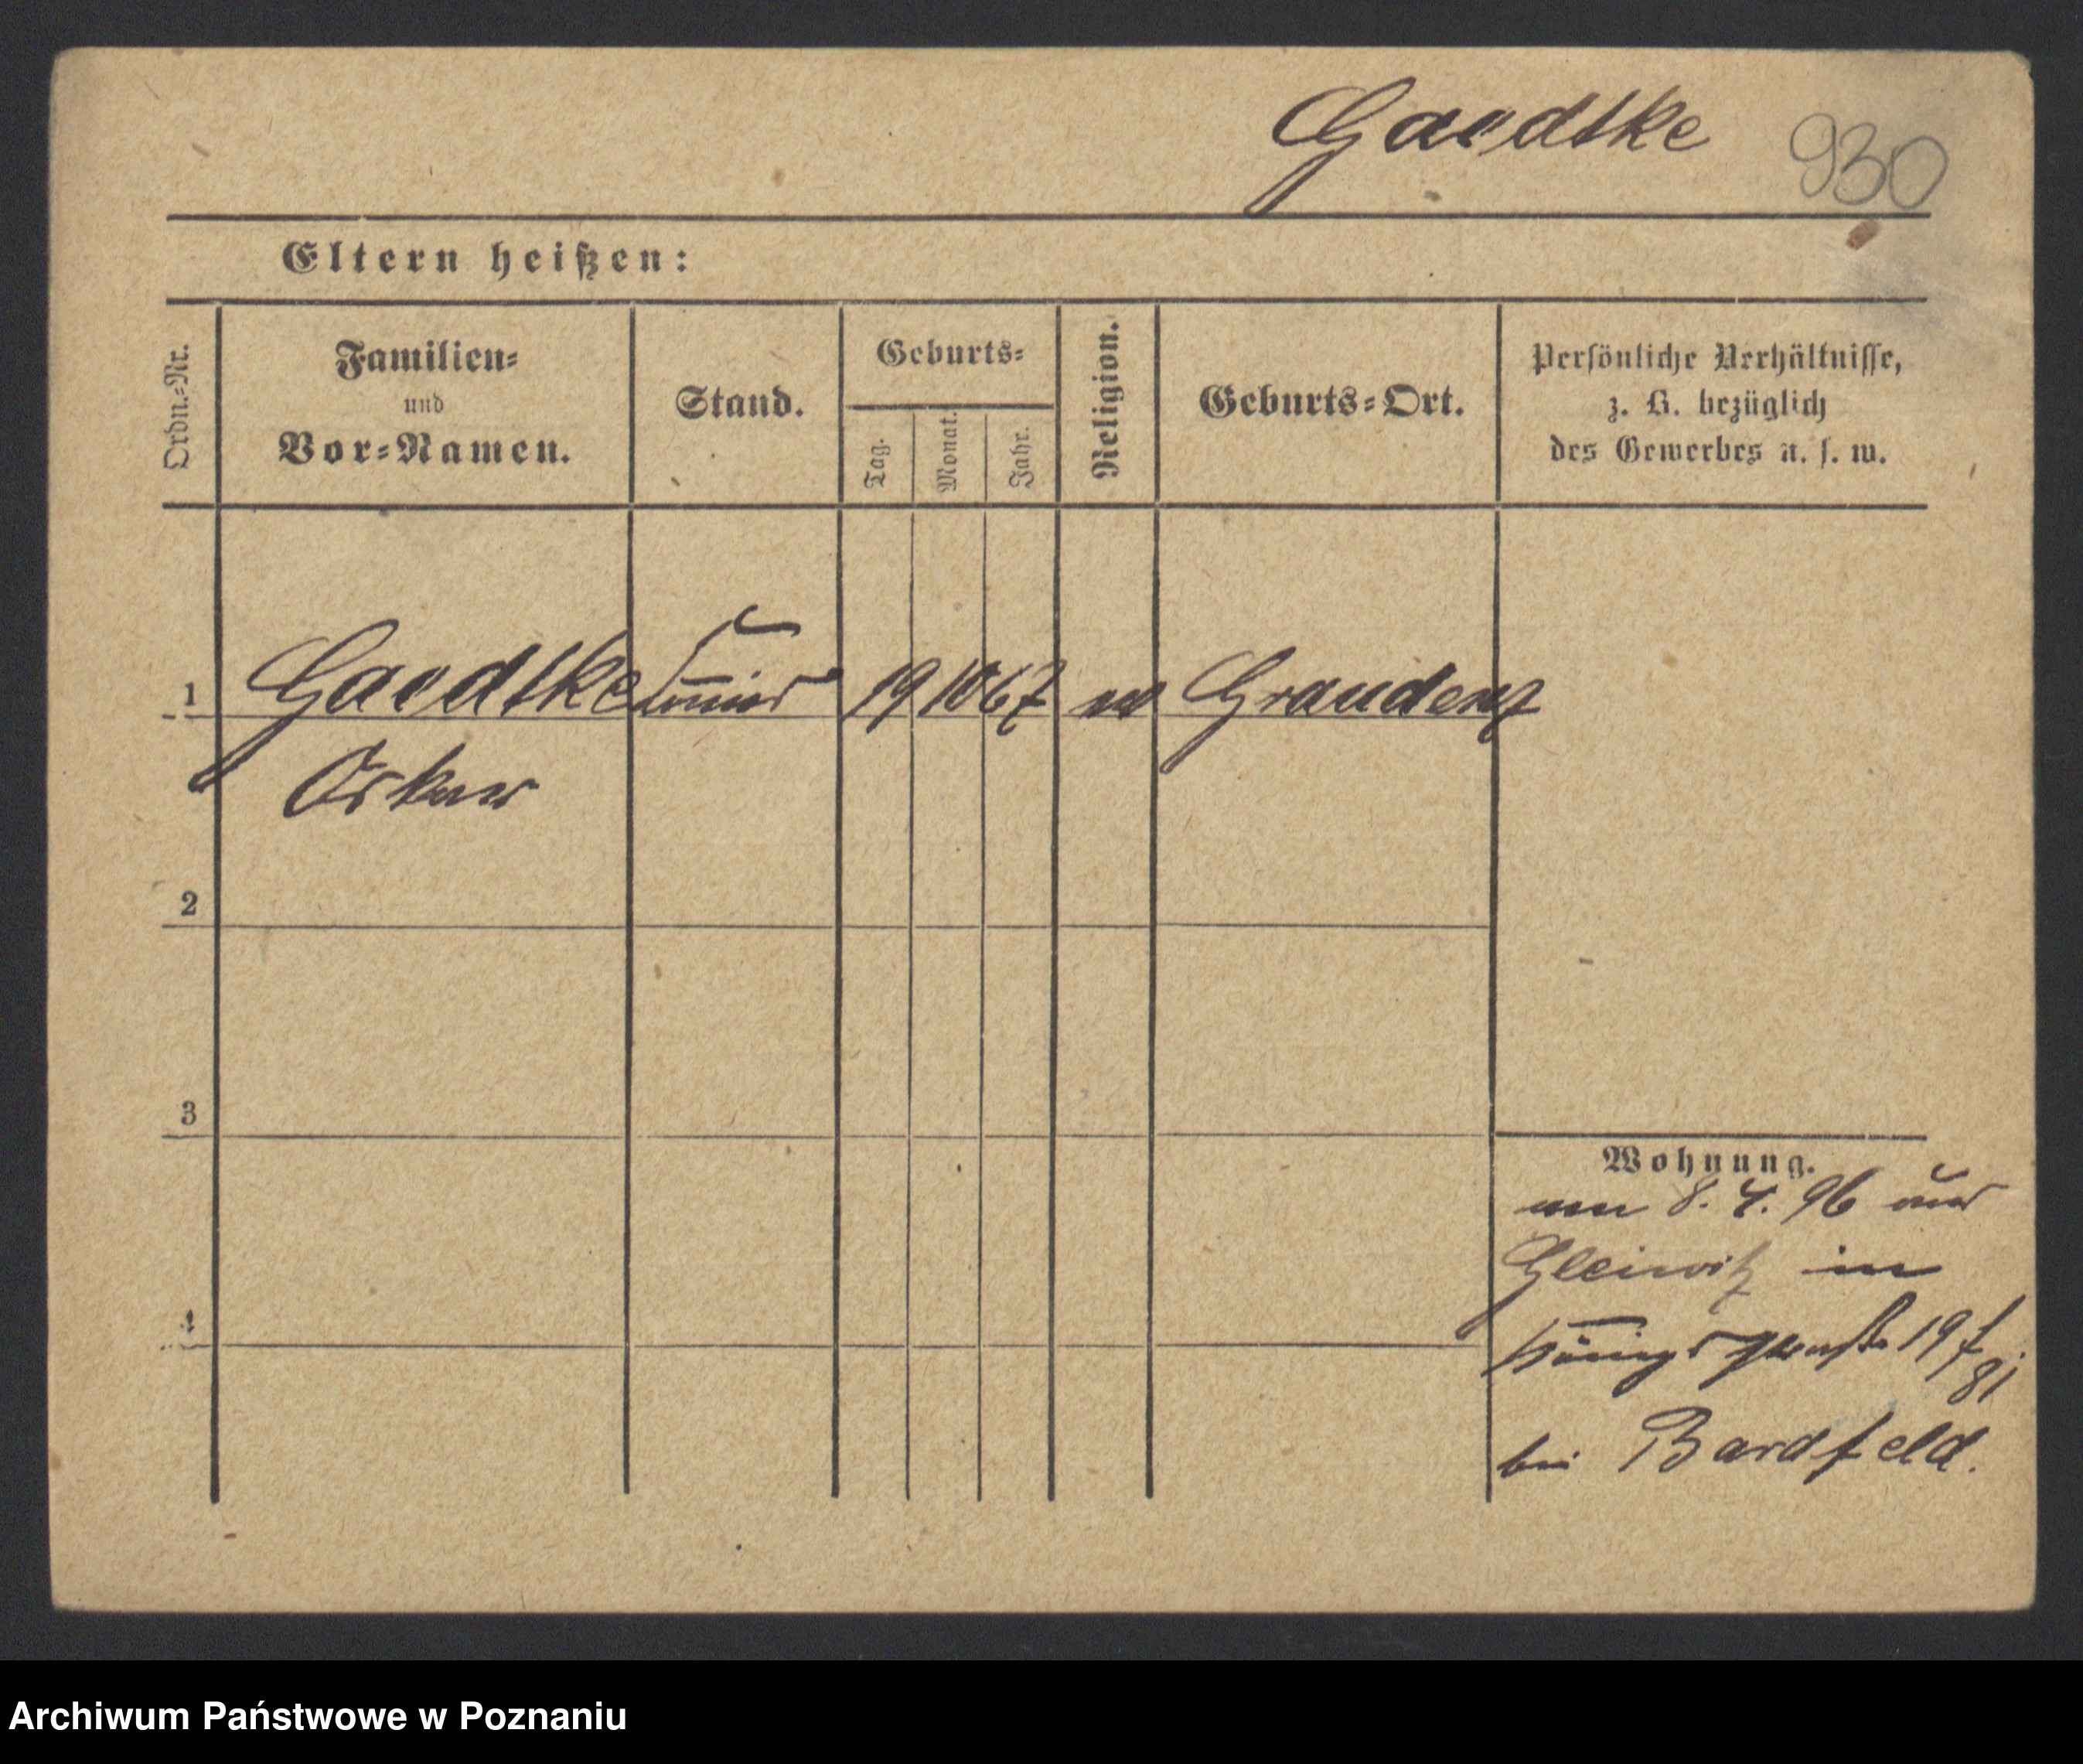 Gaedtke 930
Eltern heißen:
Ordn.-Nr.
Familien-
und
Vor-Namen.
Stand.
Geburts-
Tag.
Monat.
Jahr.
Religion.
Geburts-Ort.
Persönliche Verhältnisse,
z. B. bezüglich
des Gewerbes u. s. w.
1 Gaedtke 19 10 67 Graudenz
Oskar
2
3
4
Wohnung.
8. 4. 96 aus
Gleiwitz in
Königs 19
bei Bardfeld.
Archiwum Państwowe w Poznaniu